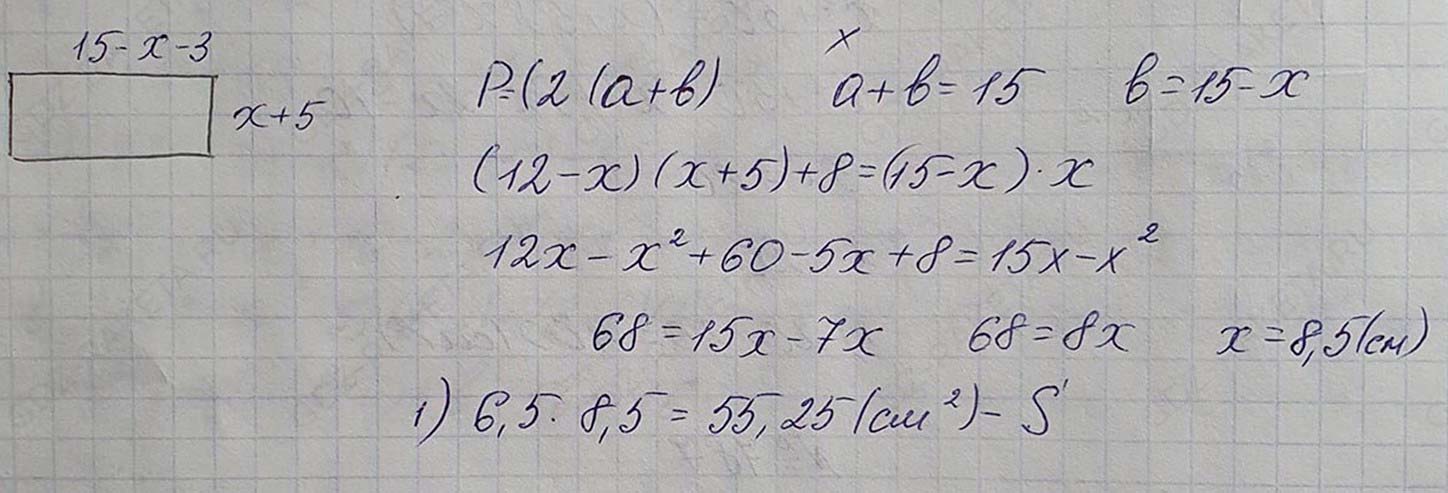 15-x-3
x+5
x
P=(2(a+в) a+в=15 в=15-x
(12-x)(x+5)+8=(15-x)·x
12x-x²+60-5x+8=15x-x²
68=15x-7x 68=8x x=8,5(см)
1) 6,5·8,5=55,25(см²)-S